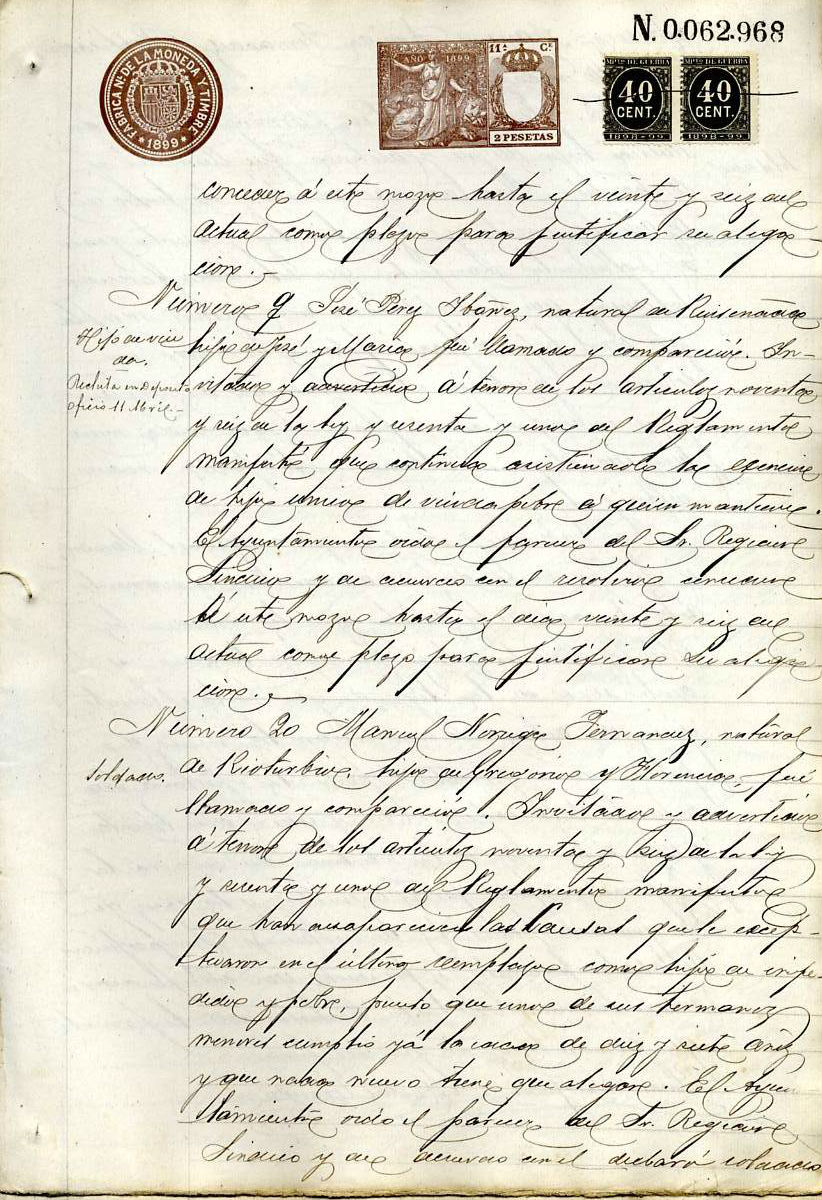 N. 0.062.968
FABRICA Nl. DE LA MONEDA Y TIMBRE
* 1899 *
AÑO 1899
11ª Cl.
2 PESETAS
MPTO DE GUERRA
40
CENT.
1898-99
MPTO DE GUERRA
40
CENT.
1898-99
conceder á este mozo hasta el veinte y seiz del
actual como plazo para justificar su alega-
cion.-
Número 9 José Perez Ibañez, natural de Ruisenada
hijo de José y Maria, fué llamado y compareció. In-
vitado y advertido á tenor de los articuloz noventa
y seiz de la ley y sesenta y uno del Reglamento
manifestó que continua existiendo la
de hijo unico de viuda pobre á quien mantiene.
El Ayuntamiento oido el parecer del Sr. Regidor
Sindico y de acuerdo con el
á este mozo hasta el dia veinte y seiz del
actual como plazo para justificar su alega
cion.-
Hijo de viu
da.
Recluta en deposito
oficio 11 Abril-
Número 20 Manuel Noriega Fernandez, natural
de Rioturbio, hijo de Gregorio y Florencia, fué
llamado y compareció. Invitado y advertido
á tenor de los articuloz noventa y seiz de la ley
y sesenta y uno del Reglamento manifestó
que han desaparecido las causas que le excep-
tuaron en el último reemplazo como hijo de impe-
dido y pobre, puesto que uno de sus hermanoz
menores cumplió yá la edad de diez y siete añoz
y que nada nuevo tiene que alegar. El Ayun
tamiento oido el parecer del Sr. Regidor
Sindico y de acuerdo con el declaró soldado
Soldado.